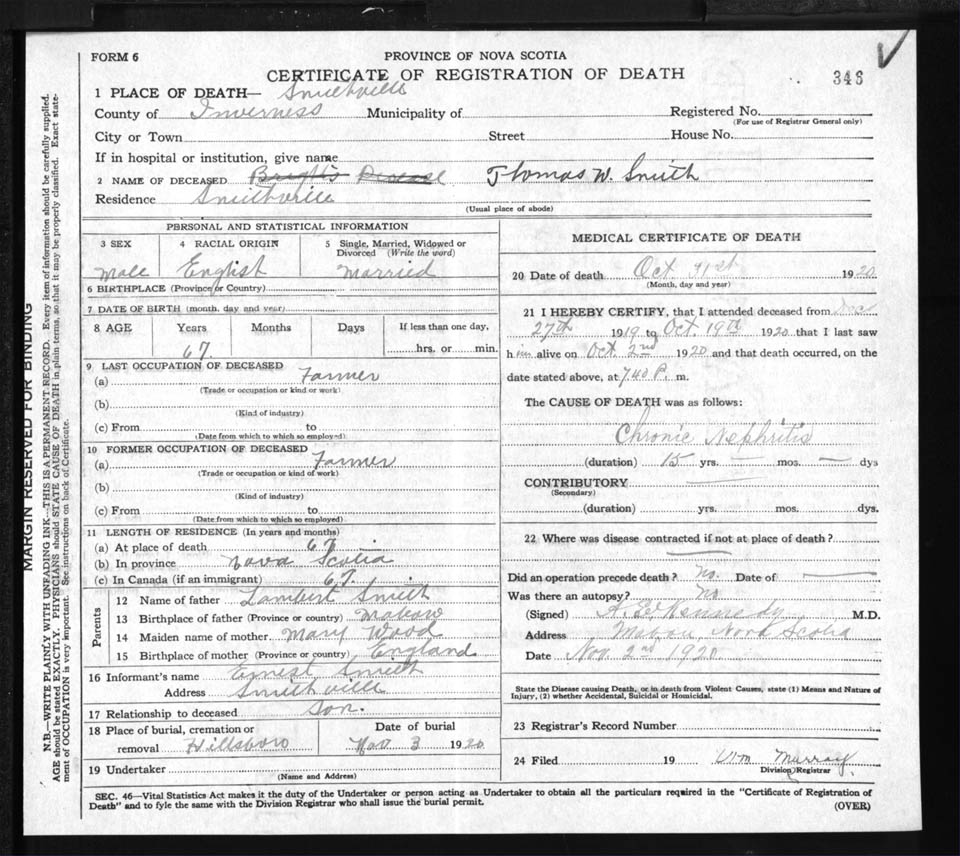 FORM 6
PROVINCE OF NOVA SCOTIA
CERTIFICATE OF REGISTRATION OF DEATH
346
1 PLACE OF DEATH— Smithville
County of Inverness Municipality of Registered No.
(For use of Registrar General only)
City or Town Street House No.
If in hospital or institution, give name
2 NAME OF DECEASED Bright's Disease Thomas W. Smith
Residence Smithville
(Usual place of abode)
PERSONAL AND STATISTICAL INFORMATION
3 SEX 4 RACIAL ORIGIN 5 Single, Married, Widowed or
Divorced (Write the word)
Male English Married
6 BIRTHPLACE (Province or Country)
7 DATE OF BIRTH (month, day and year)
8 AGE Years Months Days If less than one day,
67 hrs. or min.
9 LAST OCCUPATION OF DECEASED
(a) Farmer
(Trade or occupation or kind or work)
(b)
(Kind of industry)
(c) From to
(Date from which to which so employed)
10 FORMER OCCUPATION OF DECEASED
(a) Farmer
(Trade or occupation or kind of work)
(b)
(Kind of industry)
(c) From to
(Date from which to which so employed)
11 LENGTH OF RESIDENCE (In years and months)
(a) At place of death 67
(b) In province Nova Scotia
(c) In Canada (if an immigrant) 67.
Parents
12 Name of father Lambert Smith
13 Birthplace of father (Province or country) Mabou
14 Maiden name of mother Mary Wood
15 Birthplace of mother (Province or country) England
16 Informant's name Ernest Smith
Address Smithville
17 Relationship to deceased Son.
18 Place of burial, cremation or Date of burial
removal Hillsboro Nov. 3 1920
19 Undertaker
(Name and Address)
MEDICAL CERTIFICATE OF DEATH
20 Date of death Oct 31st 1920
(Month, day and year)
21 I HEREBY CERTIFY, that I attended deceased from Dec
27th 1919 to Oct. 19th 1920 that I last saw
him alive on Oct 2nd 1920 and that death occurred, on the
date stated above, at 7.40 P. m.
The CAUSE OF DEATH was as follows:
Chronic Nephritis
(duration) 15 yrs. — mos. — dys
CONTRIBUTORY
(Secondary)
(duration) yrs. mos. dys.
22 Where was disease contracted if not at place of death?
Did an operation precede death? no. Date of
Was there an autopsy? no
(Signed) Kennedy M.D.
Address Mabou, Nova Scotia
Date Nov. 2nd 1920
State the Disease causing Death, or in death from Violent Causes, state (1) Means and Nature of
Injury, (2) whether Accidental, Suicidal or Homicidal.
23 Registrar's Record Number
24 Filed 19 Wm Murray
Division Registrar
SEC. 46—Vital Statistics Act makes it the duty of the Undertaker or person acting as Undertaker to obtain all the particulars required in the "Certificate of Registration of
Death" and to fyle the same with the Division Registrar who shall issue the burial permit.
(OVER)
MARGIN RESERVED FOR BINDING
N.B.—WRITE PLAINLY WITH UNFADING INK—THIS IS A PERMANENT RECORD. Every item of information should be carefully supplied.
AGE should be stated EXACTLY. PHYSICIANS should STATE CAUSE OF DEATH in plain terms, so that it may be properly classified. Exact state-
ment of OCCUPATION is very important. See instructions on back of Certificate.